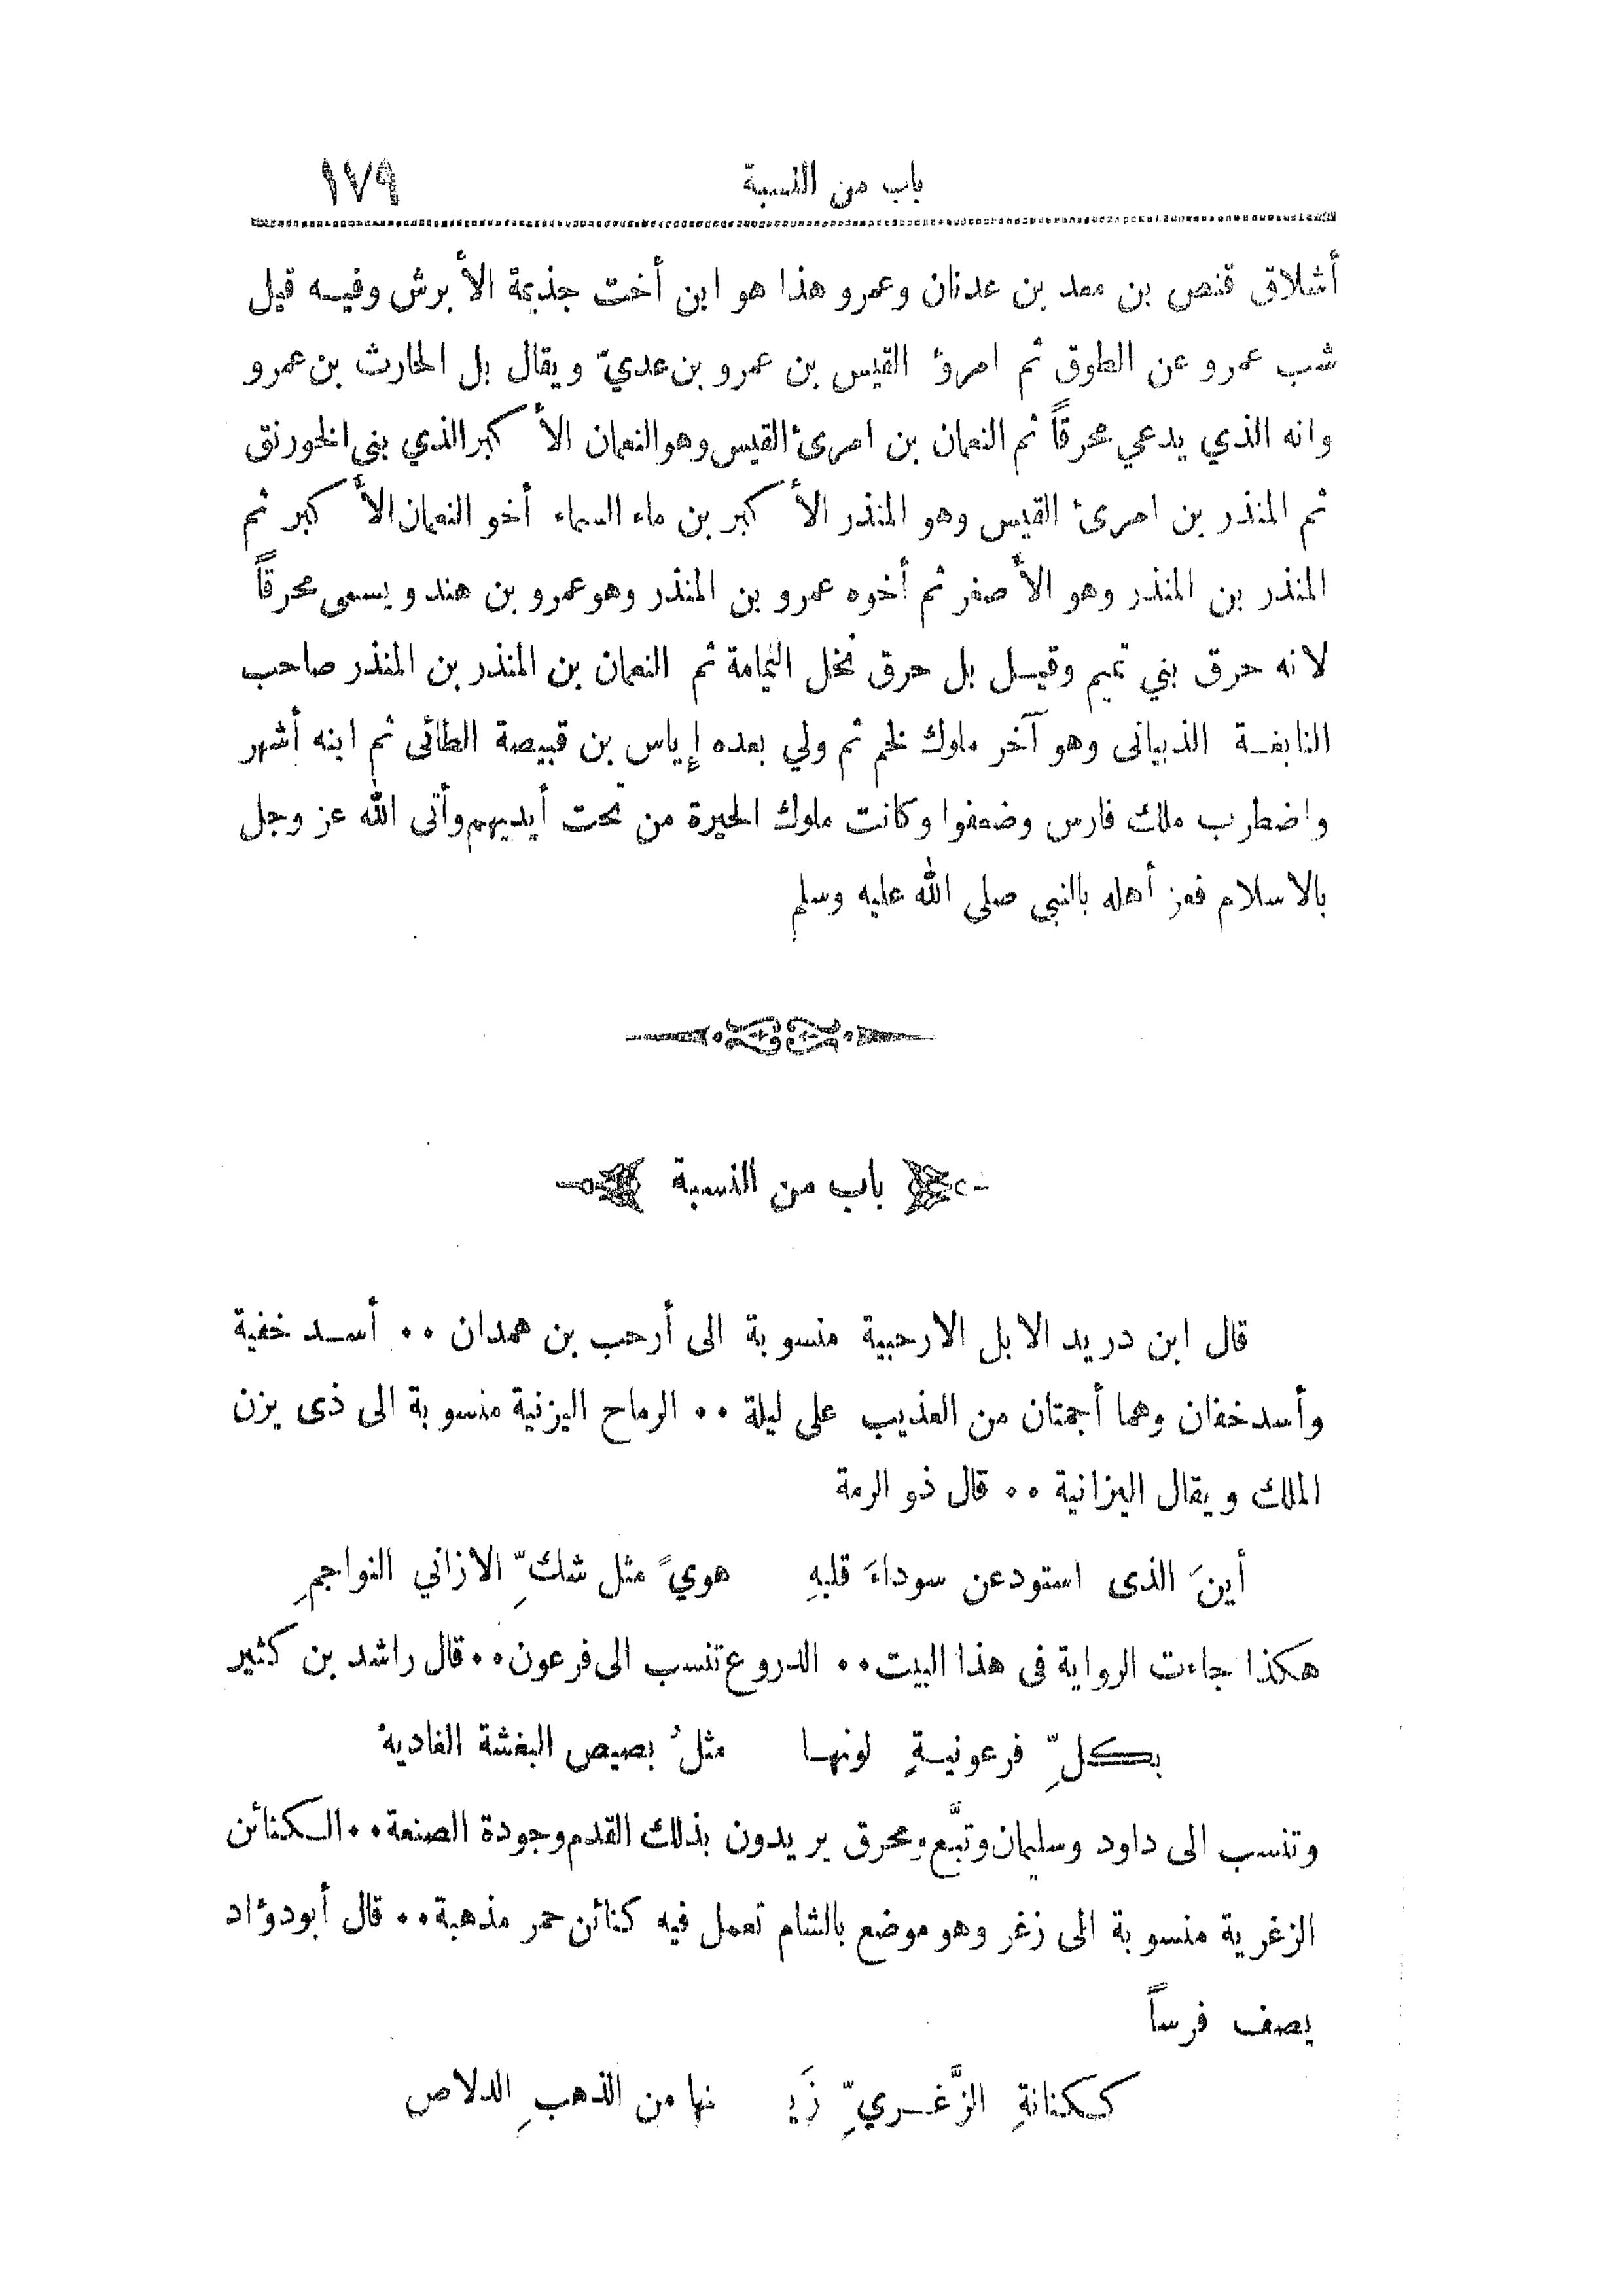 باب من النسبة ١٧٩
أشلاق قنص بن معد بن عدنان وعمرو هذا هو ابن أخت جذيمة الأبرش وفيه قيل
شب عمرو عن الطوق ثم امرؤ القيس بن عمرو بن عديّ ويقال بل الحارث بن عمرو
وانه الذي يدعي محرقاً ثم النعمان بن امرئ القيس وهو النعمان الأكبر الذي بنى الخورنق
ثم المنذر بن امرئ القيس وهو المنذر الأكبر بن ماء السماء أخو النعمان الأكبر ثم
المنذر بن المنذر وهو الأصغر ثم أخوه عمرو بن المنذر وهو عمرو بن هند ويسمى محرقاً
لانه حرق بني تميم وقيل بل حرق نخل اليمامة ثم النعمان بن المنذر بن المنذر صاحب
النابغة الذبيانى وهو آخر ملوك لخم ثم ولي بعده إياس بن قبيصة الطائى ثم ابنه أشهر
واضطرب ملك فارس وضعفوا وكانت ملوك الحيرة من تحت أيديهم وأتى الله عز وجل
بالاسلام فعز أهله بالنبي صلى الله عليه وسلم
باب من النسبة
قال ابن دريد الابل الارحبية منسوبة الى أرحب بن همدان ٠٠ أسد خفية
وأسد خفان وهما أجمتان من العذيب على ليلة ٠٠ الرماح اليزنية منسوبة الى ذى يزن
الملك ويقال اليزانية ٠٠ قال ذو الرمة
أينَ الذى استودعن سوداءَ قلبهِ هويً مثل شكِّ الازاني النواجمِ
هكذا جاءت الرواية فى هذا البيت ٠٠ الدروع تنسب الى فرعون ٠٠ قال راشد بن كثير
بكلِّ فرعونيةٍ لونها مثلُ بصيص البغشة الغاديهْ
وتنسب الى داود وسليمان وتبَّع ومحرق يريدون بذلك القدم وجودة الصنعة ٠٠ الكنائن
الزغرية منسوبة الى زغر وهو موضع بالشام تعمل فيه كنائن حمر مذهبة ٠٠ قال أبو دؤاد
يصف فرساً
ككنانةِ الزَّغريِّ زَيـ نها من الذهبِ الدلاص